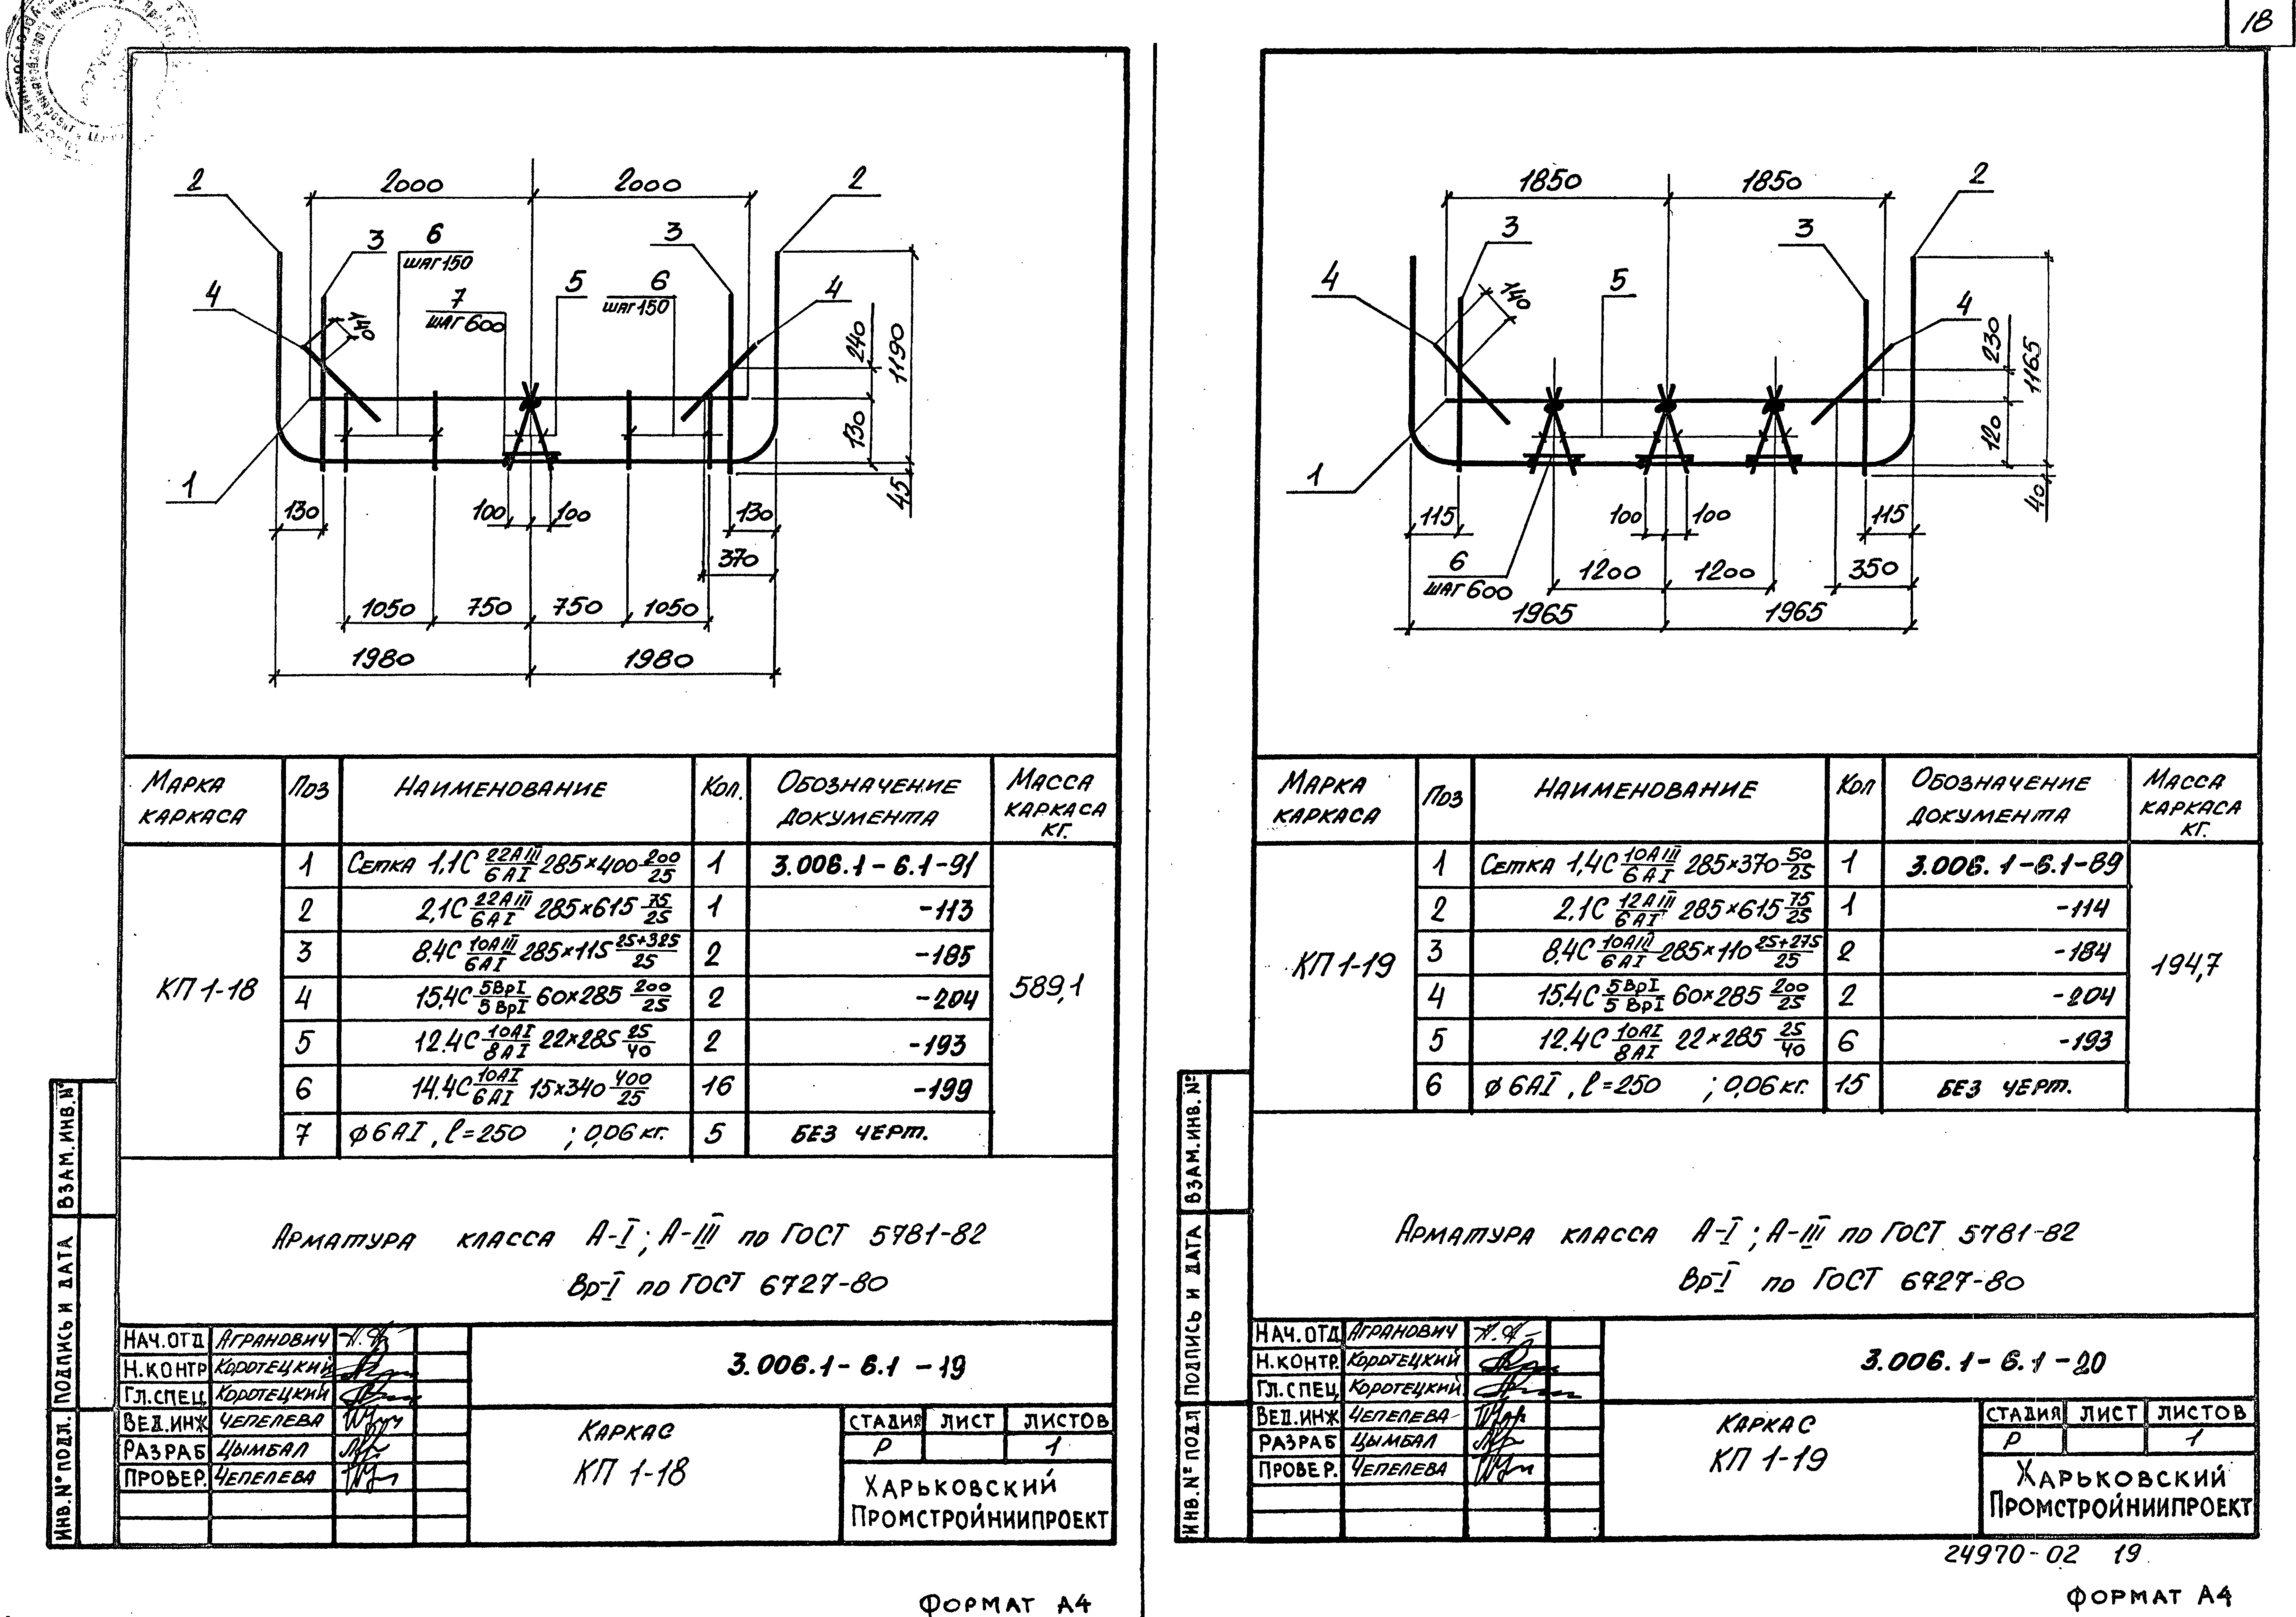 18
2000 2000
2 2
3 6 3
ШАГ 150
4 7 5 6 4
ШАГ 600 ШАГ 150
140
240
1190
130
45
1
130 100 100 130
370
1050 750 750 1050
1980 1980
МАРКА КАРКАСА ПОЗ НАИМЕНОВАНИЕ КОЛ. ОБОЗНАЧЕНИЕ ДОКУМЕНТА МАССА КАРКАСА КГ.
КП 1-18 589,1
1 СЕТКА 1,1С 22АIII/6АI 285×400 200/25 1 3.006.1-6.1-91
2 2,1С 22АIII/6АI 285×615 75/25 1 -113
3 8.4С 10АIII/6АI 285×115 25+325/25 2 -185
4 15.4С 5ВрI/5ВрI 60×285 200/25 2 -204
5 12.4С 10АI/8АI 22×285 25/40 2 -193
6 14.4С 10АI/6АI 15×340 400/25 16 -199
7 ϕ6АI, ℓ=250 ; 0,06 кг. 5 БЕЗ ЧЕРТ.
АРМАТУРА КЛАССА А-I; А-III ПО ГОСТ 5781-82
Вр-I ПО ГОСТ 6727-80
НАЧ.ОТД АГРАНОВИЧ
Н.КОНТР КОРОТЕЦКИЙ
ГЛ.СПЕЦ КОРОТЕЦКИЙ
ВЕД.ИНЖ ЧЕПЕЛЕВА
РАЗРАБ ЦЫМБАЛ
ПРОВЕР. ЧЕПЕЛЕВА
3.006.1-6.1-19
КАРКАС
КП 1-18
СТАДИЯ ЛИСТ ЛИСТОВ
Р 1
ХАРЬКОВСКИЙ
ПРОМСТРОЙНИИПРОЕКТ
ИНВ.№ ПОДЛ. ПОДПИСЬ И ДАТА ВЗАМ.ИНВ.№
ФОРМАТ А4
1850 1850
2
3 3
4 5 4
140
230
1165
120
40
1
115 100 100 115
6
ШАГ 600
1200 1200 350
1965 1965
МАРКА КАРКАСА ПОЗ НАИМЕНОВАНИЕ КОЛ ОБОЗНАЧЕНИЕ ДОКУМЕНТА МАССА КАРКАСА КГ.
КП 1-19 194,7
1 СЕТКА 1,4С 10АIII/6АI 285×370 50/25 1 3.006.1-6.1-89
2 2,1С 12АIII/6АI 285×615 75/25 1 -114
3 8.4С 10АIII/6АI 285×110 25+275/25 2 -184
4 15.4С 5ВрI/5ВрI 60×285 200/25 2 -204
5 12.4С 10АI/8АI 22×285 25/40 6 -193
6 ϕ6АI, ℓ=250 ; 0,06 кг. 15 БЕЗ ЧЕРТ.
АРМАТУРА КЛАССА А-I; А-III ПО ГОСТ 5781-82
Вр-I ПО ГОСТ 6727-80
НАЧ.ОТД АГРАНОВИЧ
Н.КОНТР. КОРОТЕЦКИЙ
ГЛ.СПЕЦ КОРОТЕЦКИЙ
ВЕД.ИНЖ ЧЕПЕЛЕВА
РАЗРАБ ЦЫМБАЛ
ПРОВЕР. ЧЕПЕЛЕВА
3.006.1-6.1-20
КАРКАС
КП 1-19
СТАДИЯ ЛИСТ ЛИСТОВ
Р 1
ХАРЬКОВСКИЙ
ПРОМСТРОЙНИИПРОЕКТ
ИНВ.№ ПОДЛ ПОДПИСЬ И ДАТА ВЗАМ.ИНВ.№
24970-02 19
ФОРМАТ А4